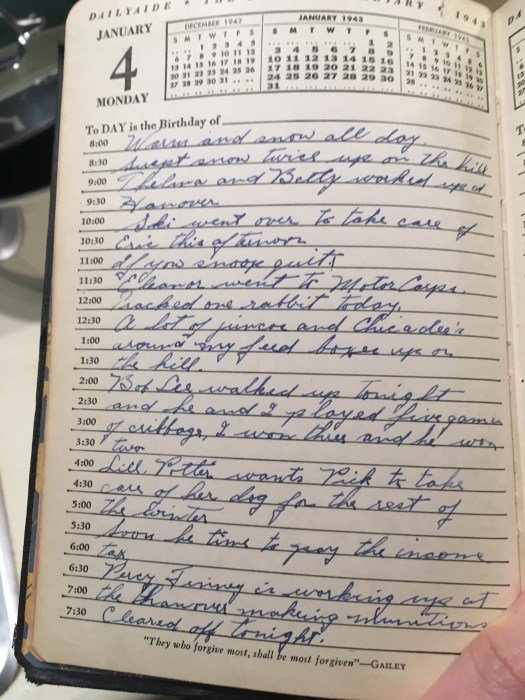 DAILYAIDE
ARY 1943
JANUARY
4
MONDAY
DECEMBER 1942
S M T W T F S
1 2 3 4 5
6 7 8 9 10 11 12
13 14 15 16 17 18 19
20 21 22 23 24 25 26
27 28 29 30 31
JANUARY 1943
S M T W T F S
1 2
3 4 5 6 7 8 9
10 11 12 13 14 15 16
17 18 19 20 21 22 23
24 25 26 27 28 29 30
31
FEBRUARY 1943
S M T W T F S
1 2 3 4 5 6
7 8 9 10 11 12 13
14 15 16 17 18 19 20
21 22 23 24 25 26 27
28
To DAY is the Birthday of
8:00 Warm and snow all day.
8:30 Swept snow twice up on the hill
9:00 Thelma and Betty worked up at
9:30 Hanover
10:00 Ski went over to take care of
10:30 Eric this afternoon
11:00 If you snoop quit!
11:30 Eleanor went to Motor Corps.
12:00 Tracked one rabbit today.
12:30 A lot of juncos and Chicadee's
1:00 around my feed boxes up on
1:30 the hill.
2:00 Bob Lee walked up tonight
2:30 and he and I played five games
3:00 of cribbage, I won three and he won
3:30 two
4:00 Lill Potter wants Pick to take
4:30 care of her dog for the rest of
5:00 the winter
5:30 Soon be time to pay the income
6:00 tax
6:30 Percy Finney is working up at
7:00 the Hanover making munitions
7:30 Cleared off tonight.
"They who forgive most, shall be most forgiven"—GAILEY